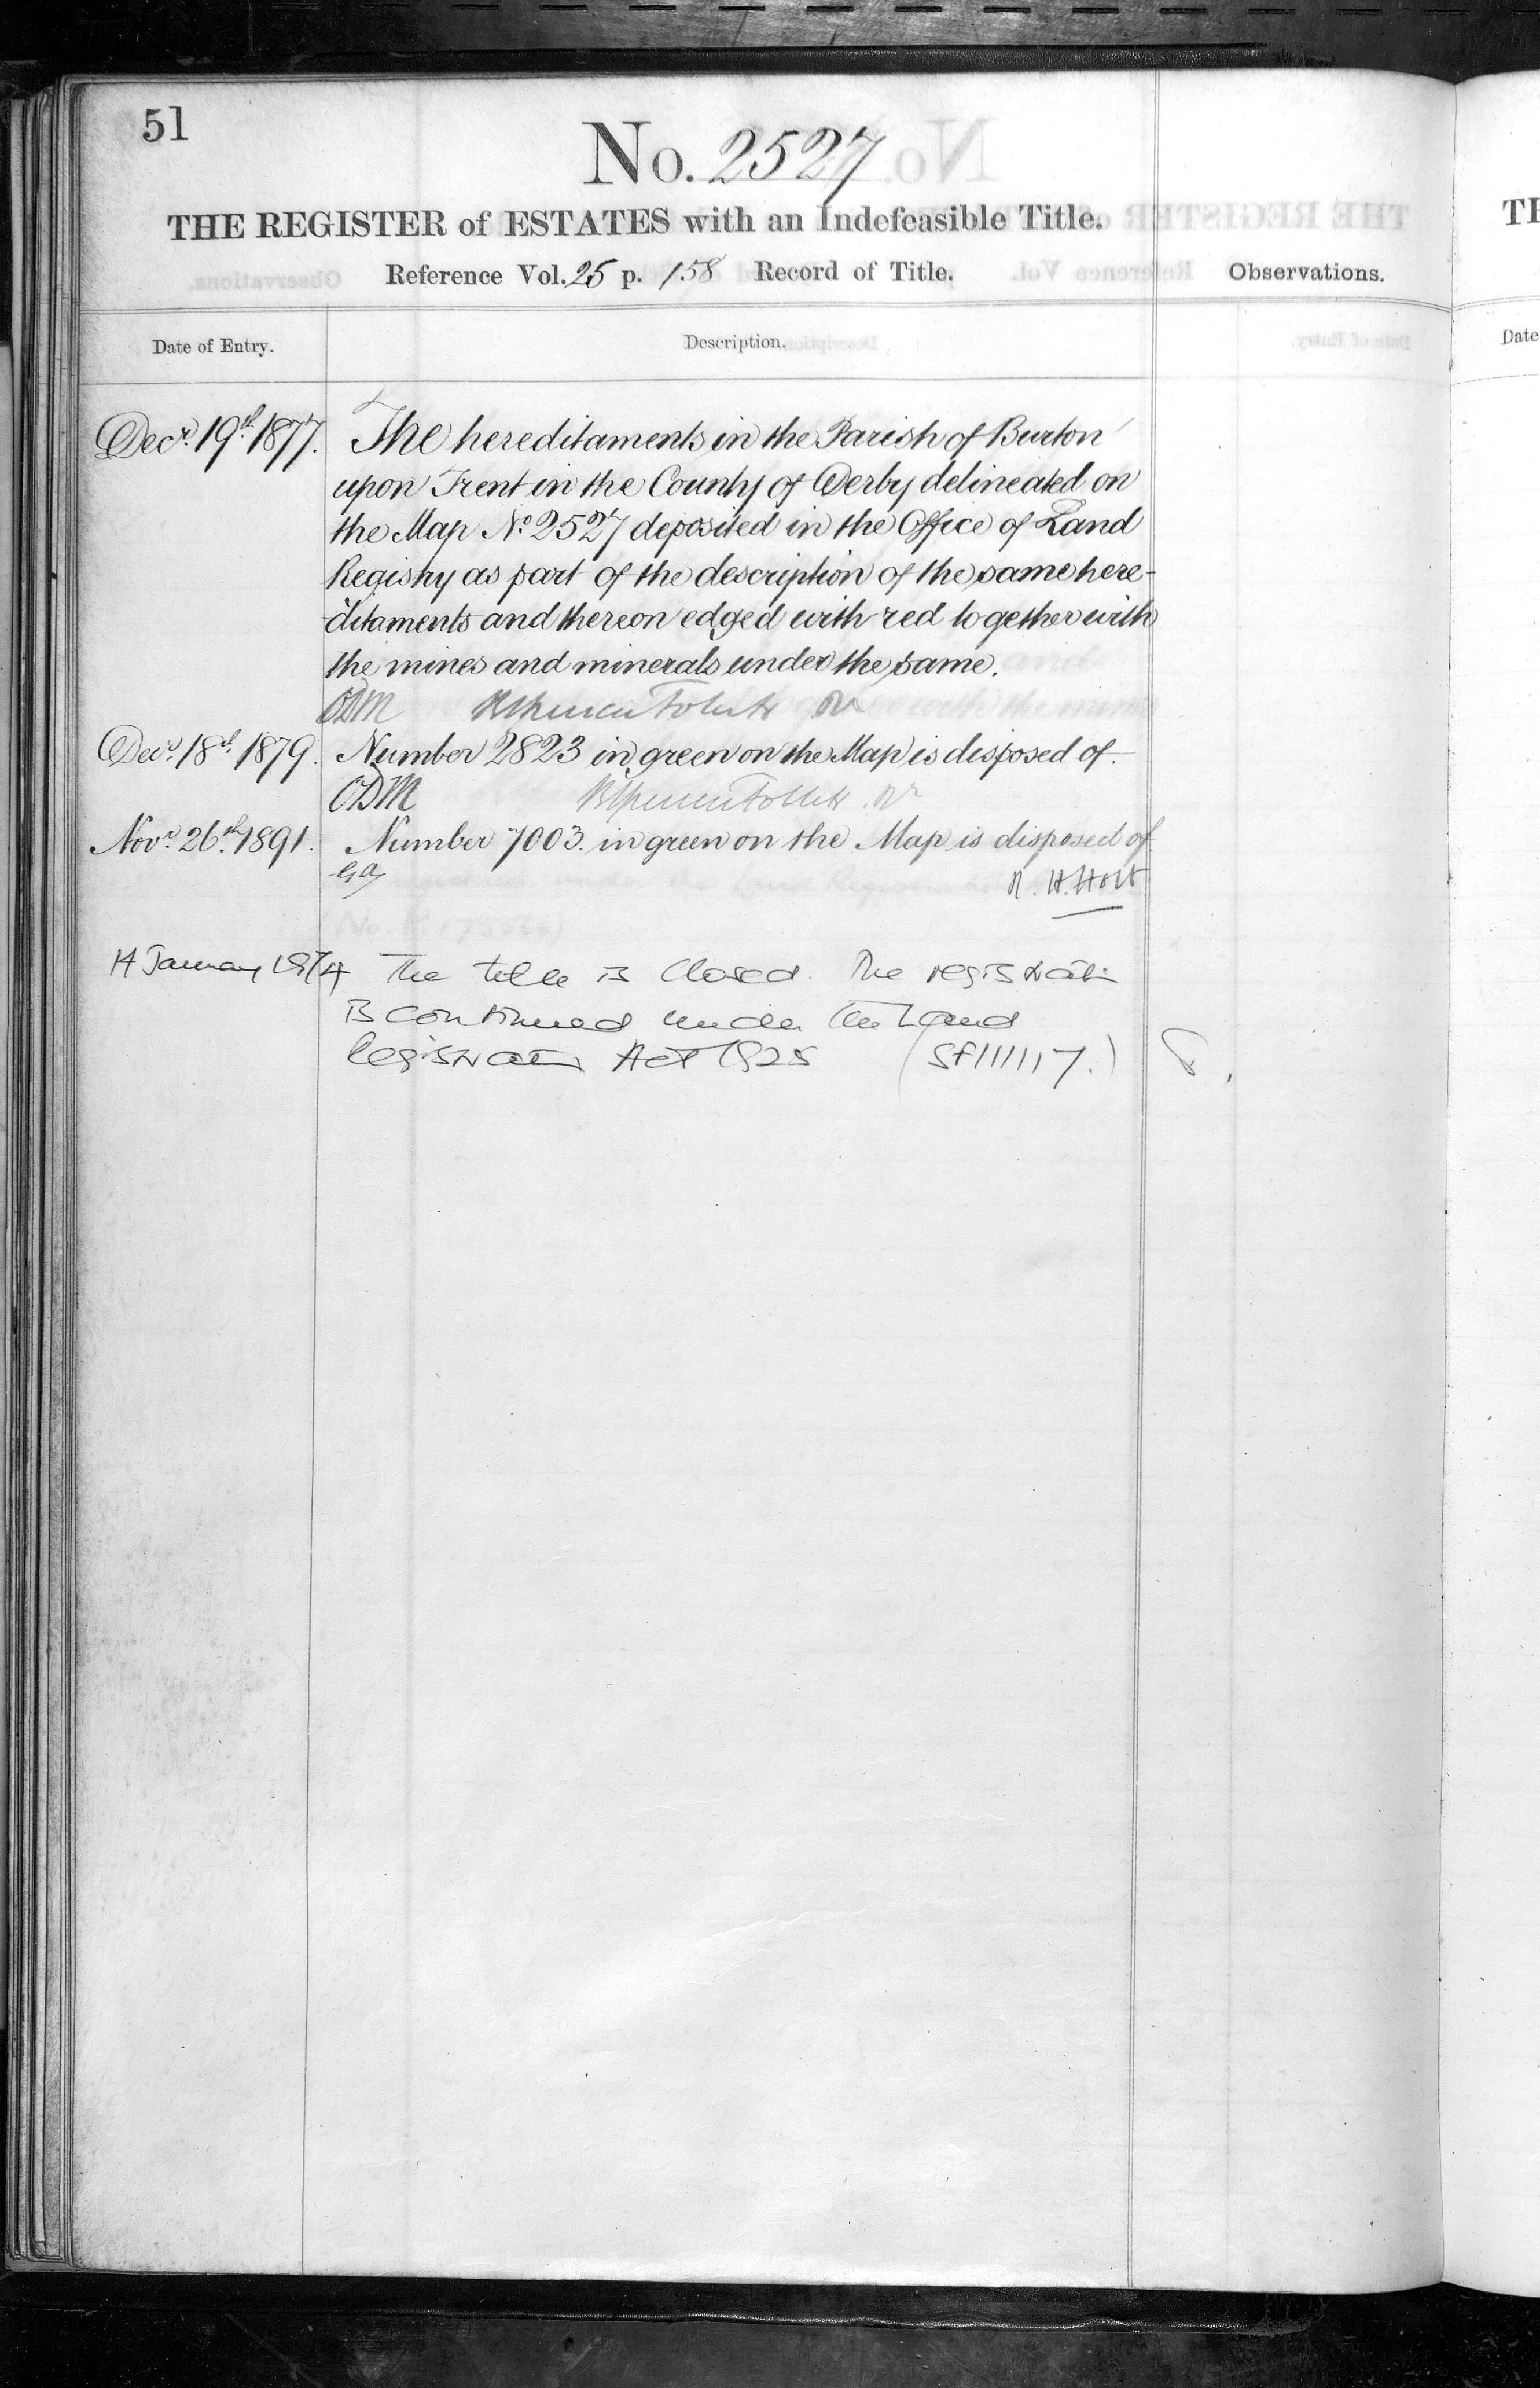 51
No. 2527
THE REGISTER of ESTATES with an Indefeasible Title.
Reference Vol. 25 p. 158 Record of Title.
Observations.
Date of Entry.
Description.
Decr. 19th 1877. The hereditaments in the Parish of Burton
upon Trent in the County of Derby delineated on
the Map No. 2527 deposited in the Office of Land
Registry as part of the description of the same here-
ditaments and thereon edged with red together with
the mines and minerals under the same.
Decr. 18th 1879. Number 2823 in green on the Map is disposed of.
Novr. 26th 1891. Number 7003 in green on the Map is disposed of
R. H. Holt
14 January 1974 The title is closed. The registration
is continued under the Land
Registration Act 1925 (SF111117.)
TH
Date